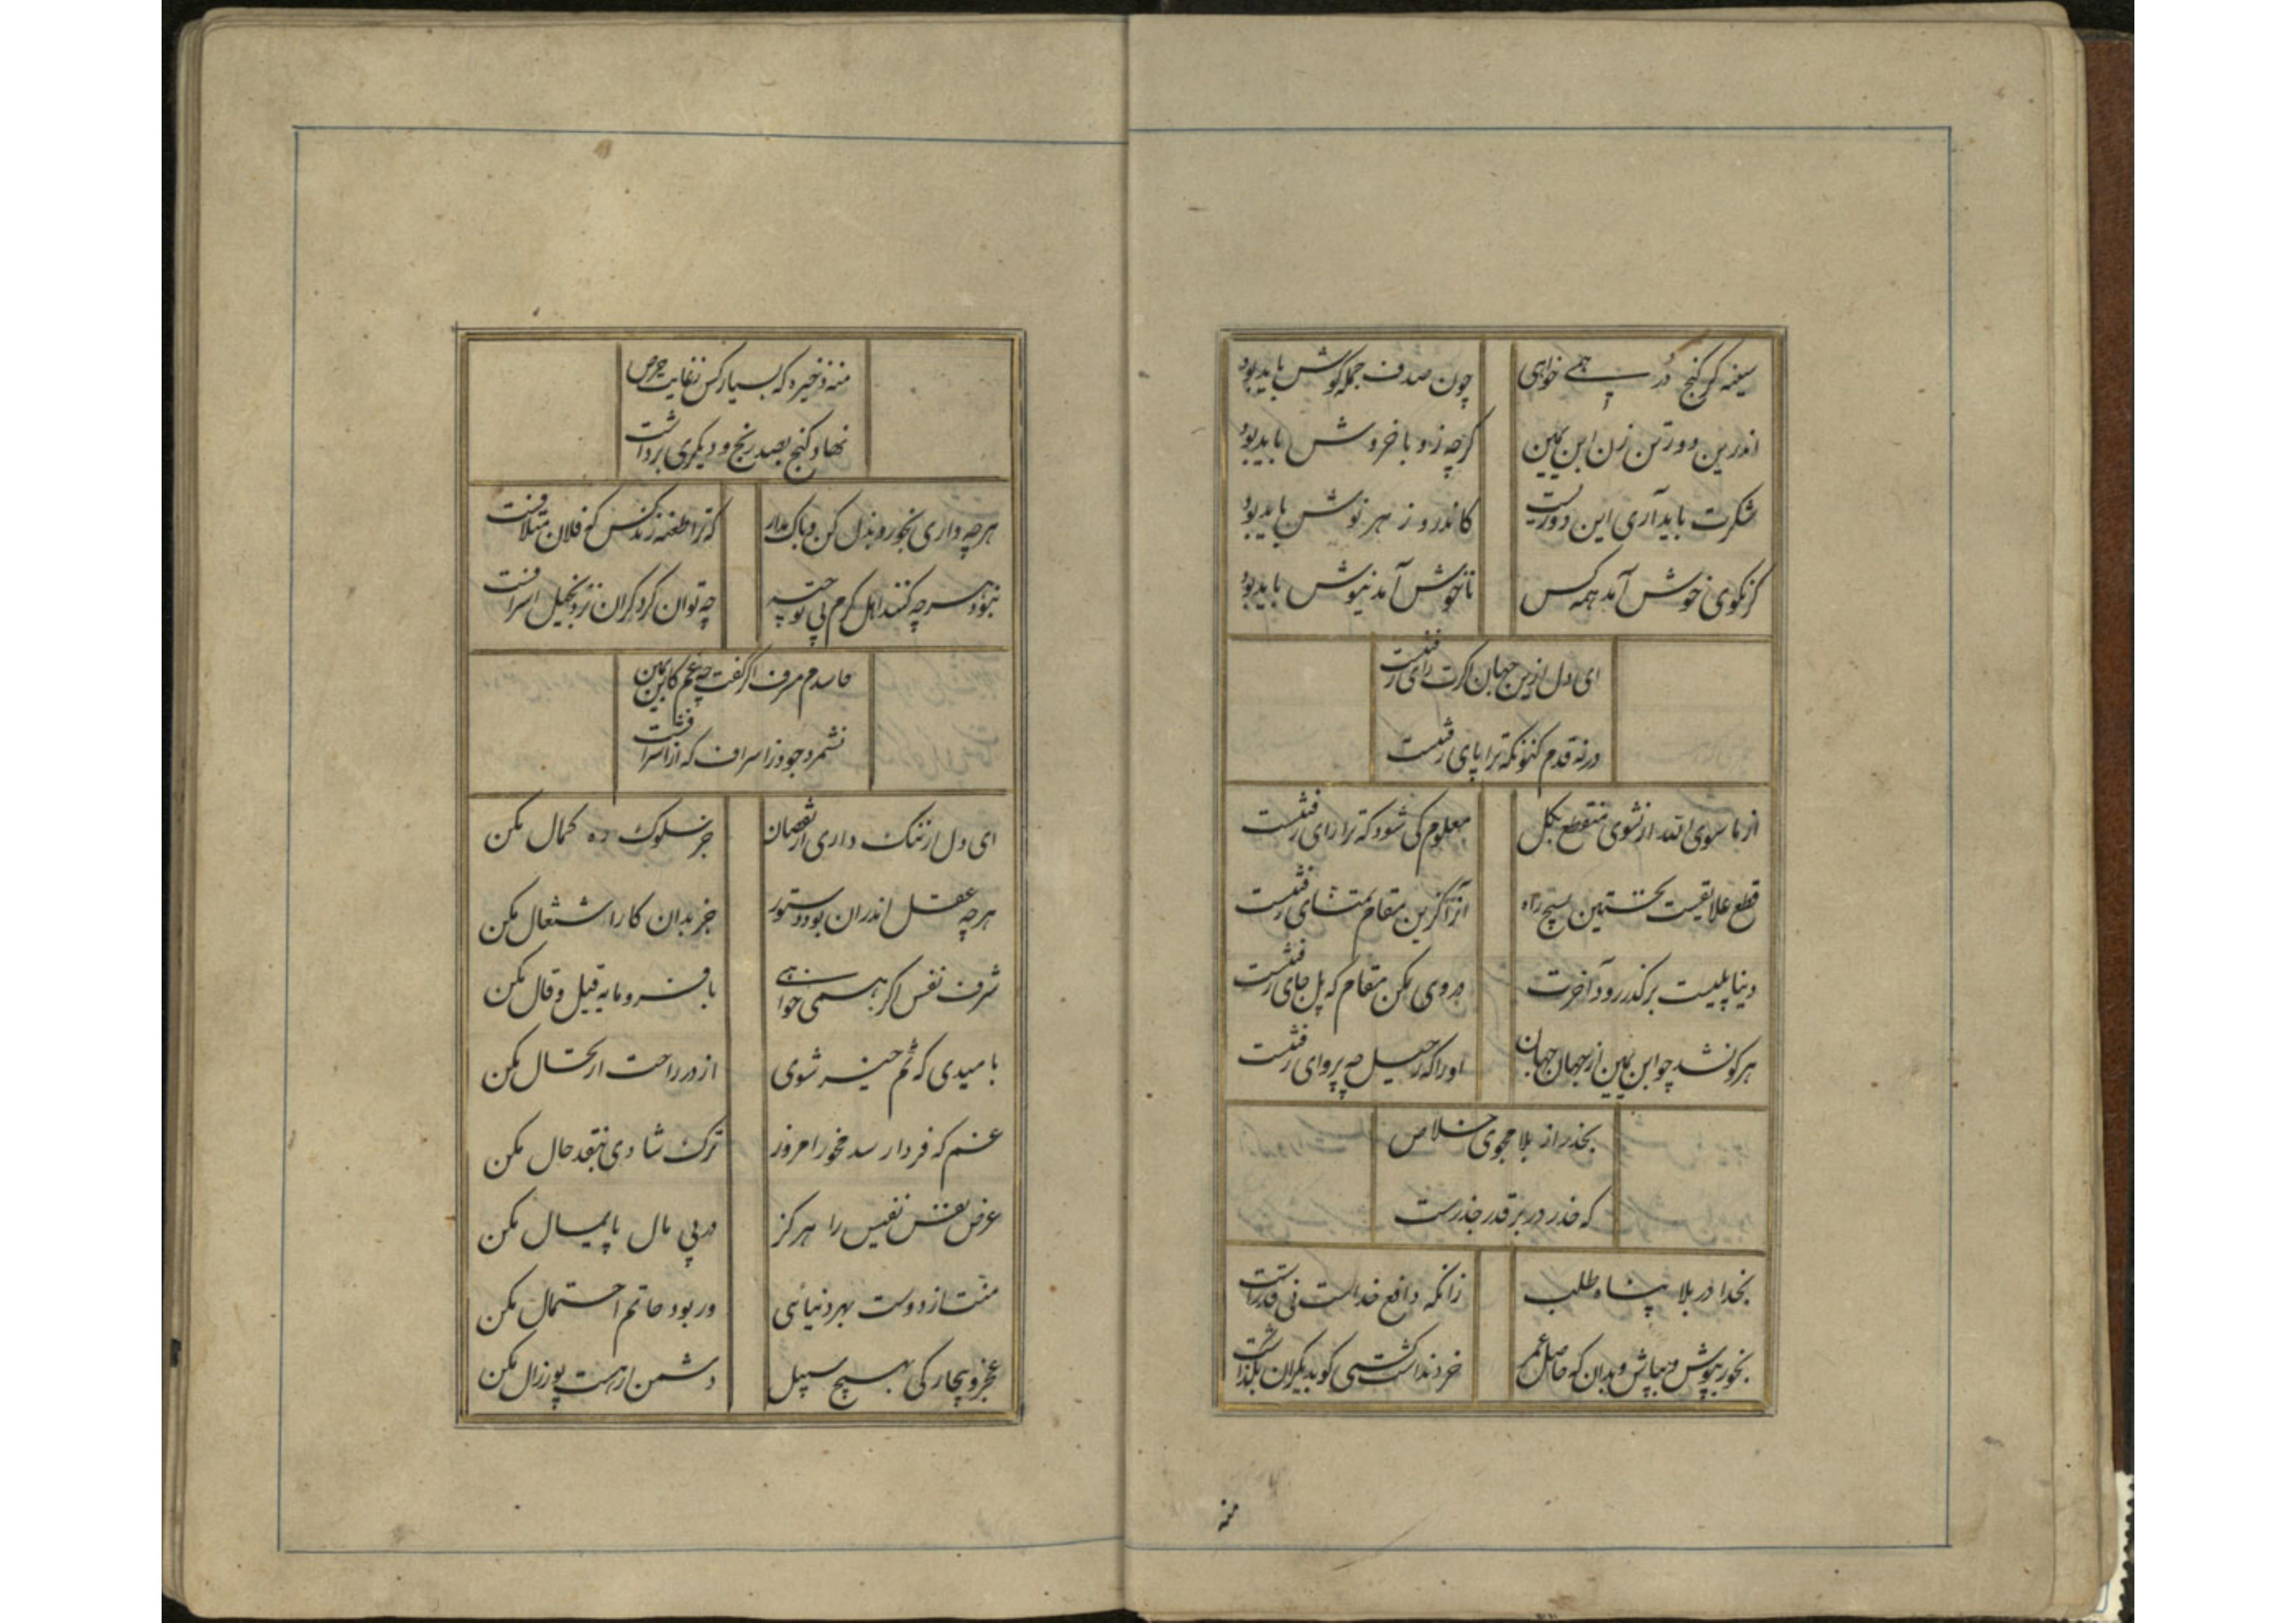 سینه گر گنج در همی خواهی
چون صدف جمله گوش باید بود
اندرین دور تن زن ابن یمین
گرچه زو با خروش باید بود
شکرت باید آری این دوریست
کاندرو زهر نوش باید بود
گر نگوی خوش آمد همه کس
ناخوش آمد نیوش باید بود
ای دل ازین جهان اگرت رای رفتنست
درنه قدم کنونکه ترا پای رفتنست
از ما سوی الله ار نشوی منقطع بکل
معلوم کی شود که ترا رای رفتنست
قطع علایقست نخستین بسیچ راه
آنرا کزین مقام تمنای رفتنست
دنیا پلیست برگذر رود آخرت
بروی مکن مقام که پل جای رفتنست
هرکو نشد چو ابن یمین از جهان جهان
اورا که رحیل چه پروای رفتنست
بحذر از بلا مجوی خلاص
که حذر در بر قدر حذرست
بخدا در بلا پناه طلب
زانکه دافع خداست نی قدرست
بخور بپوش و بپاش و بدان که حاصل عمر
خرد نداشت کسی کو بدیگران بگذاشت
منه
منه ذخیره که بسیار کس ز غایت حرص
نهاد گنج بصد رنج و دیگری برداشت
هرچه داری بخور و بذل کن و باک مدار
که ترا طعنه زند کس که فلان متلافست
نبود هرچه کنند اهل کرم بی توجیه
چه توان کرد گر آن نزد بخیل اسرافست
حاسدم مسرف اگر گفت چه غم کابن یمین
نشمرد جود ز اسراف که از اشرافست
ای دل ار ننگ داری از نقصان
جز سلوک ره کمال مکن
هرچه عقل اندران بود دستور
جز بدان کار اشتغال مکن
شرف نفس اگر همی خواهی
با فرومایه قیل و قال مکن
بامیدی که خم شوی
از در راحت ارتحال مکن
غم که فردا رسد مخور امروز
ترک شادی بنقد حال مکن
عرض نفس نفیس را هرگز
در پی مال پایمال مکن
منت از دوست بهر دنیائی
ور بود حاتم احتمال مکن
عجز و بیچارگی بهیچ سبیل
دشمن ار هست پور زال مکن